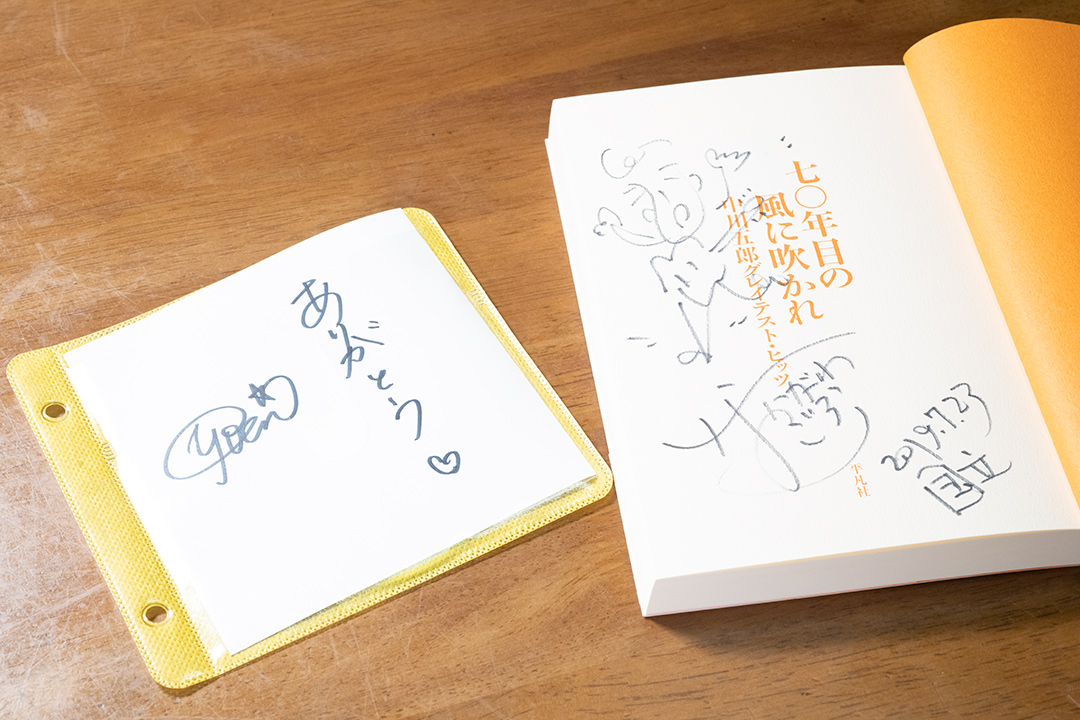 ありがとう♡
七〇年目の
風に吹かれ
中川五郎グレイテスト・ヒッツ
なかがわ
ごろう
2019.7.23
国立
平凡社